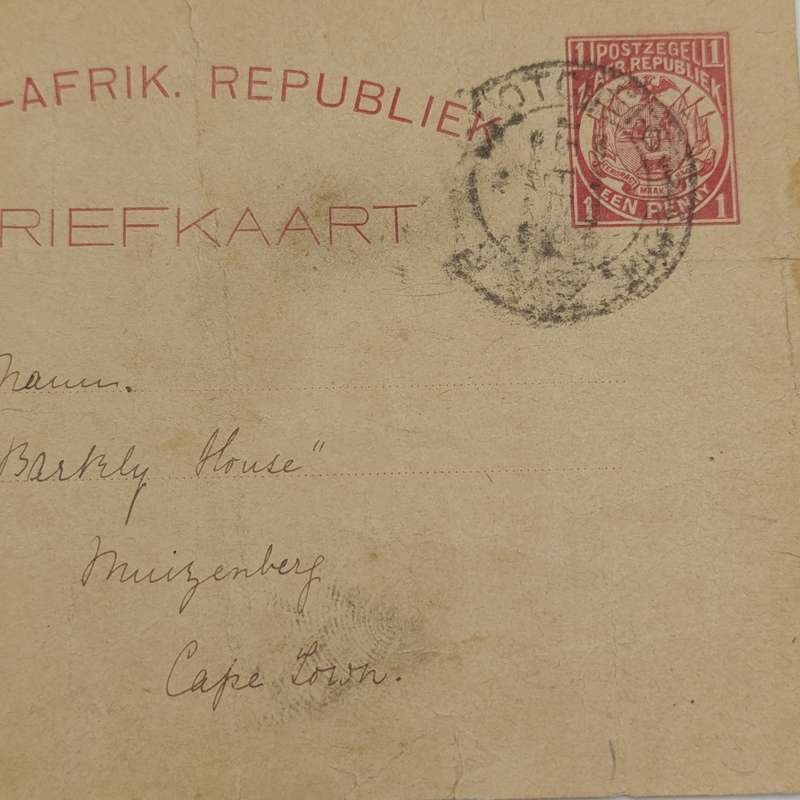 -AFRIK. REPUBLIEK
RIEFKAART
1 POSTZEGEL 1
AFR. REPUBLIEK
EENDRAGT MAAKT
1 EEN PENNY 1
"Barkly House"
Muizenberg
Cape Town.